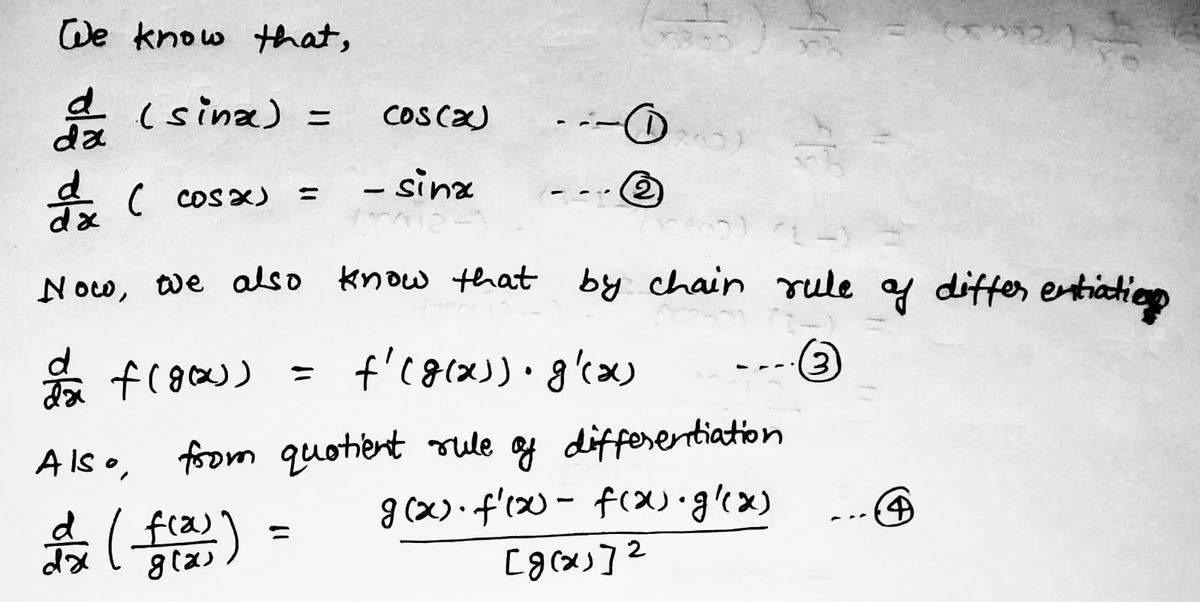 We know that,
d/dx (sinx) = cos(x) ---①
d/dx ( cosx) = - sinx ---②
Now, we also know that by chain rule of differentiation
d/dx f(g(x)) = f'(g(x))·g'(x) ----③
Also, from quotient rule of differentiation
d/dx ( f(x)/g(x) ) = g(x)·f'(x) - f(x)·g'(x) / [g(x)]² ---④